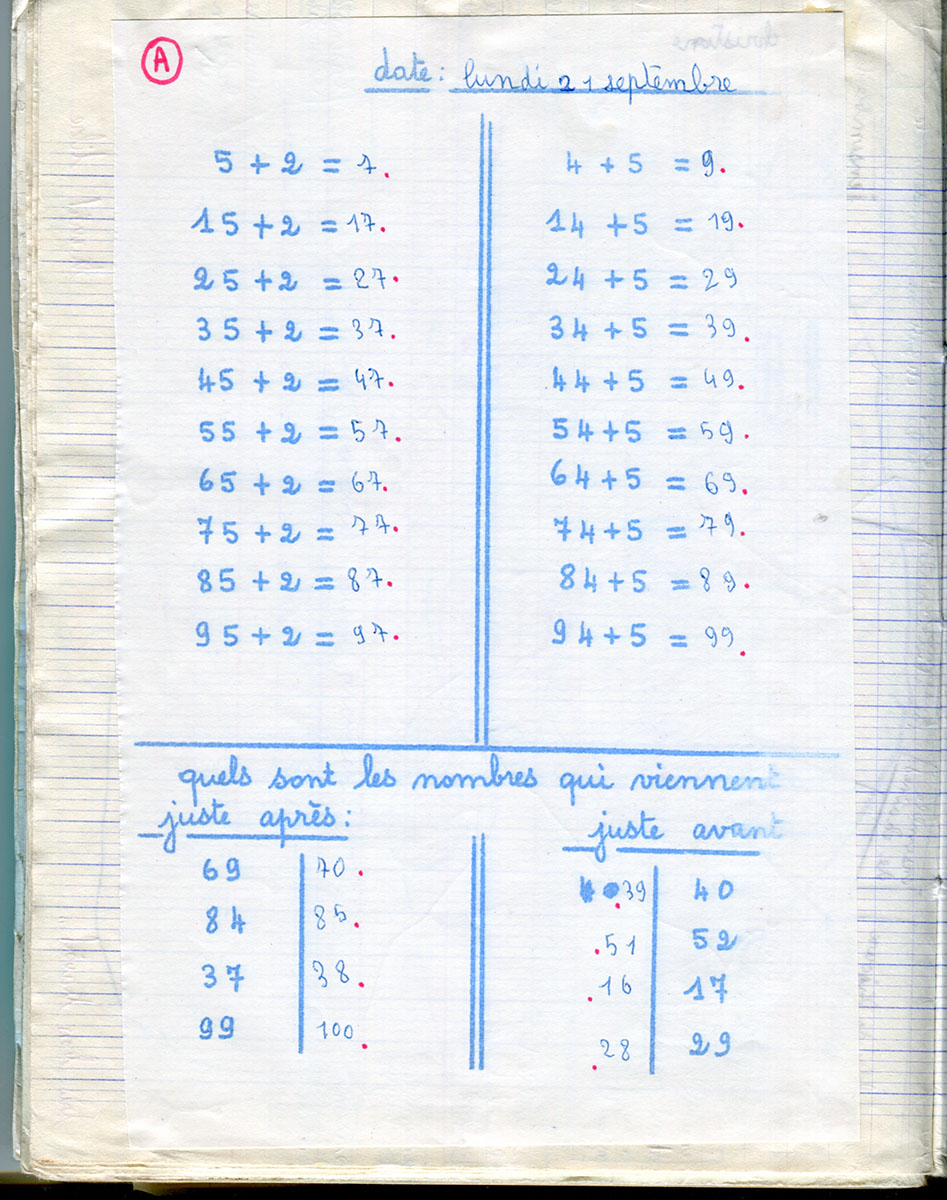 A
date: lundi 21 septembre
5 + 2 = 7.
15 + 2 = 17.
25 + 2 = 27.
35 + 2 = 37.
45 + 2 = 47.
55 + 2 = 57.
65 + 2 = 67.
75 + 2 = 77.
85 + 2 = 87.
95 + 2 = 97.
4 + 5 = 9.
14 + 5 = 19.
24 + 5 = 29
34 + 5 = 39.
44 + 5 = 49.
54 + 5 = 59.
64 + 5 = 69.
74 + 5 = 79.
84 + 5 = 89.
94 + 5 = 99.
quels sont les nombres qui viennent
juste après:
69 | 70.
84 | 85.
37 | 38.
99 | 100.
juste avant
39 | 40
.51 | 52
.16 | 17
.28 | 29